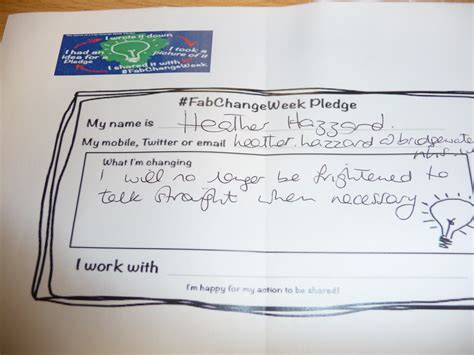 I wrote it down
I had an idea for a Pledge
I took a picture of it
I shared it with #FabChangeWeek
#FabChangeWeek Pledge
My name is Heather Hazzard.
My mobile, Twitter or email heather.hazzard@bridgewater
nhs.
What I'm changing
I will no longer be frightened to
talk straight when necessary
I work with
I'm happy for my action to be shared!